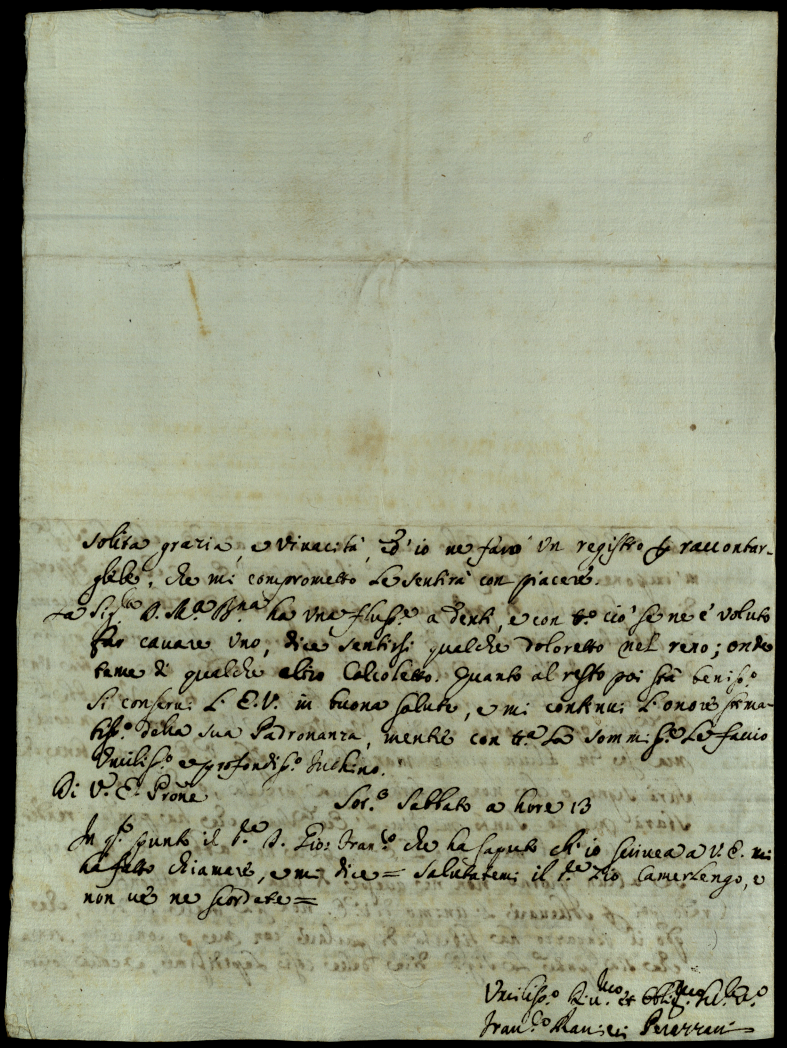 solita grazia, e vivacità, ed io ne farò un registro p raccontar-
glele, che mi comprometto Le sentirà con piacere.
La Sig.ra D. M.a B.na ha una fluss.e a denti, e con t.o ciò se ne è voluto
far cavare uno, dice sentirsi qualche doloretto nel reno; onde
teme di qualche altro Calcoletto. Quanto al resto poi stà beniss.o
Si conservi L'E.V. in buona salute, e mi continui L'onore stima-
tiss.o della sua Padronanza, mentre con tt.a La sommiss.e Le faccio
Umiliss.o e profondiss.o Inchino.
Di V.E. Prone
Sor.o Sabbato a hore 13
In q.sto punto il S.e D. Gio: Fran.co che ha saputo ch'io scrivea a V.E. mi
hà fatto chiamare, e mi dice = Salutatemi il S.e Zio Camerlengo, e
non ve ne scordate =
Umiliss.o Div.mo et Obblig.mo
Fran.co